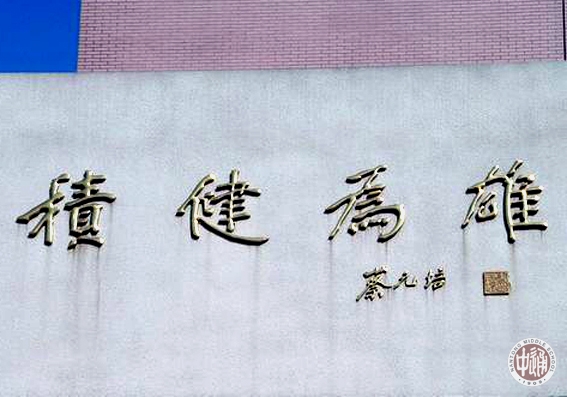 積健為雄
蔡元培
NANTONG MIDDLE SCHOOL
中通
1909